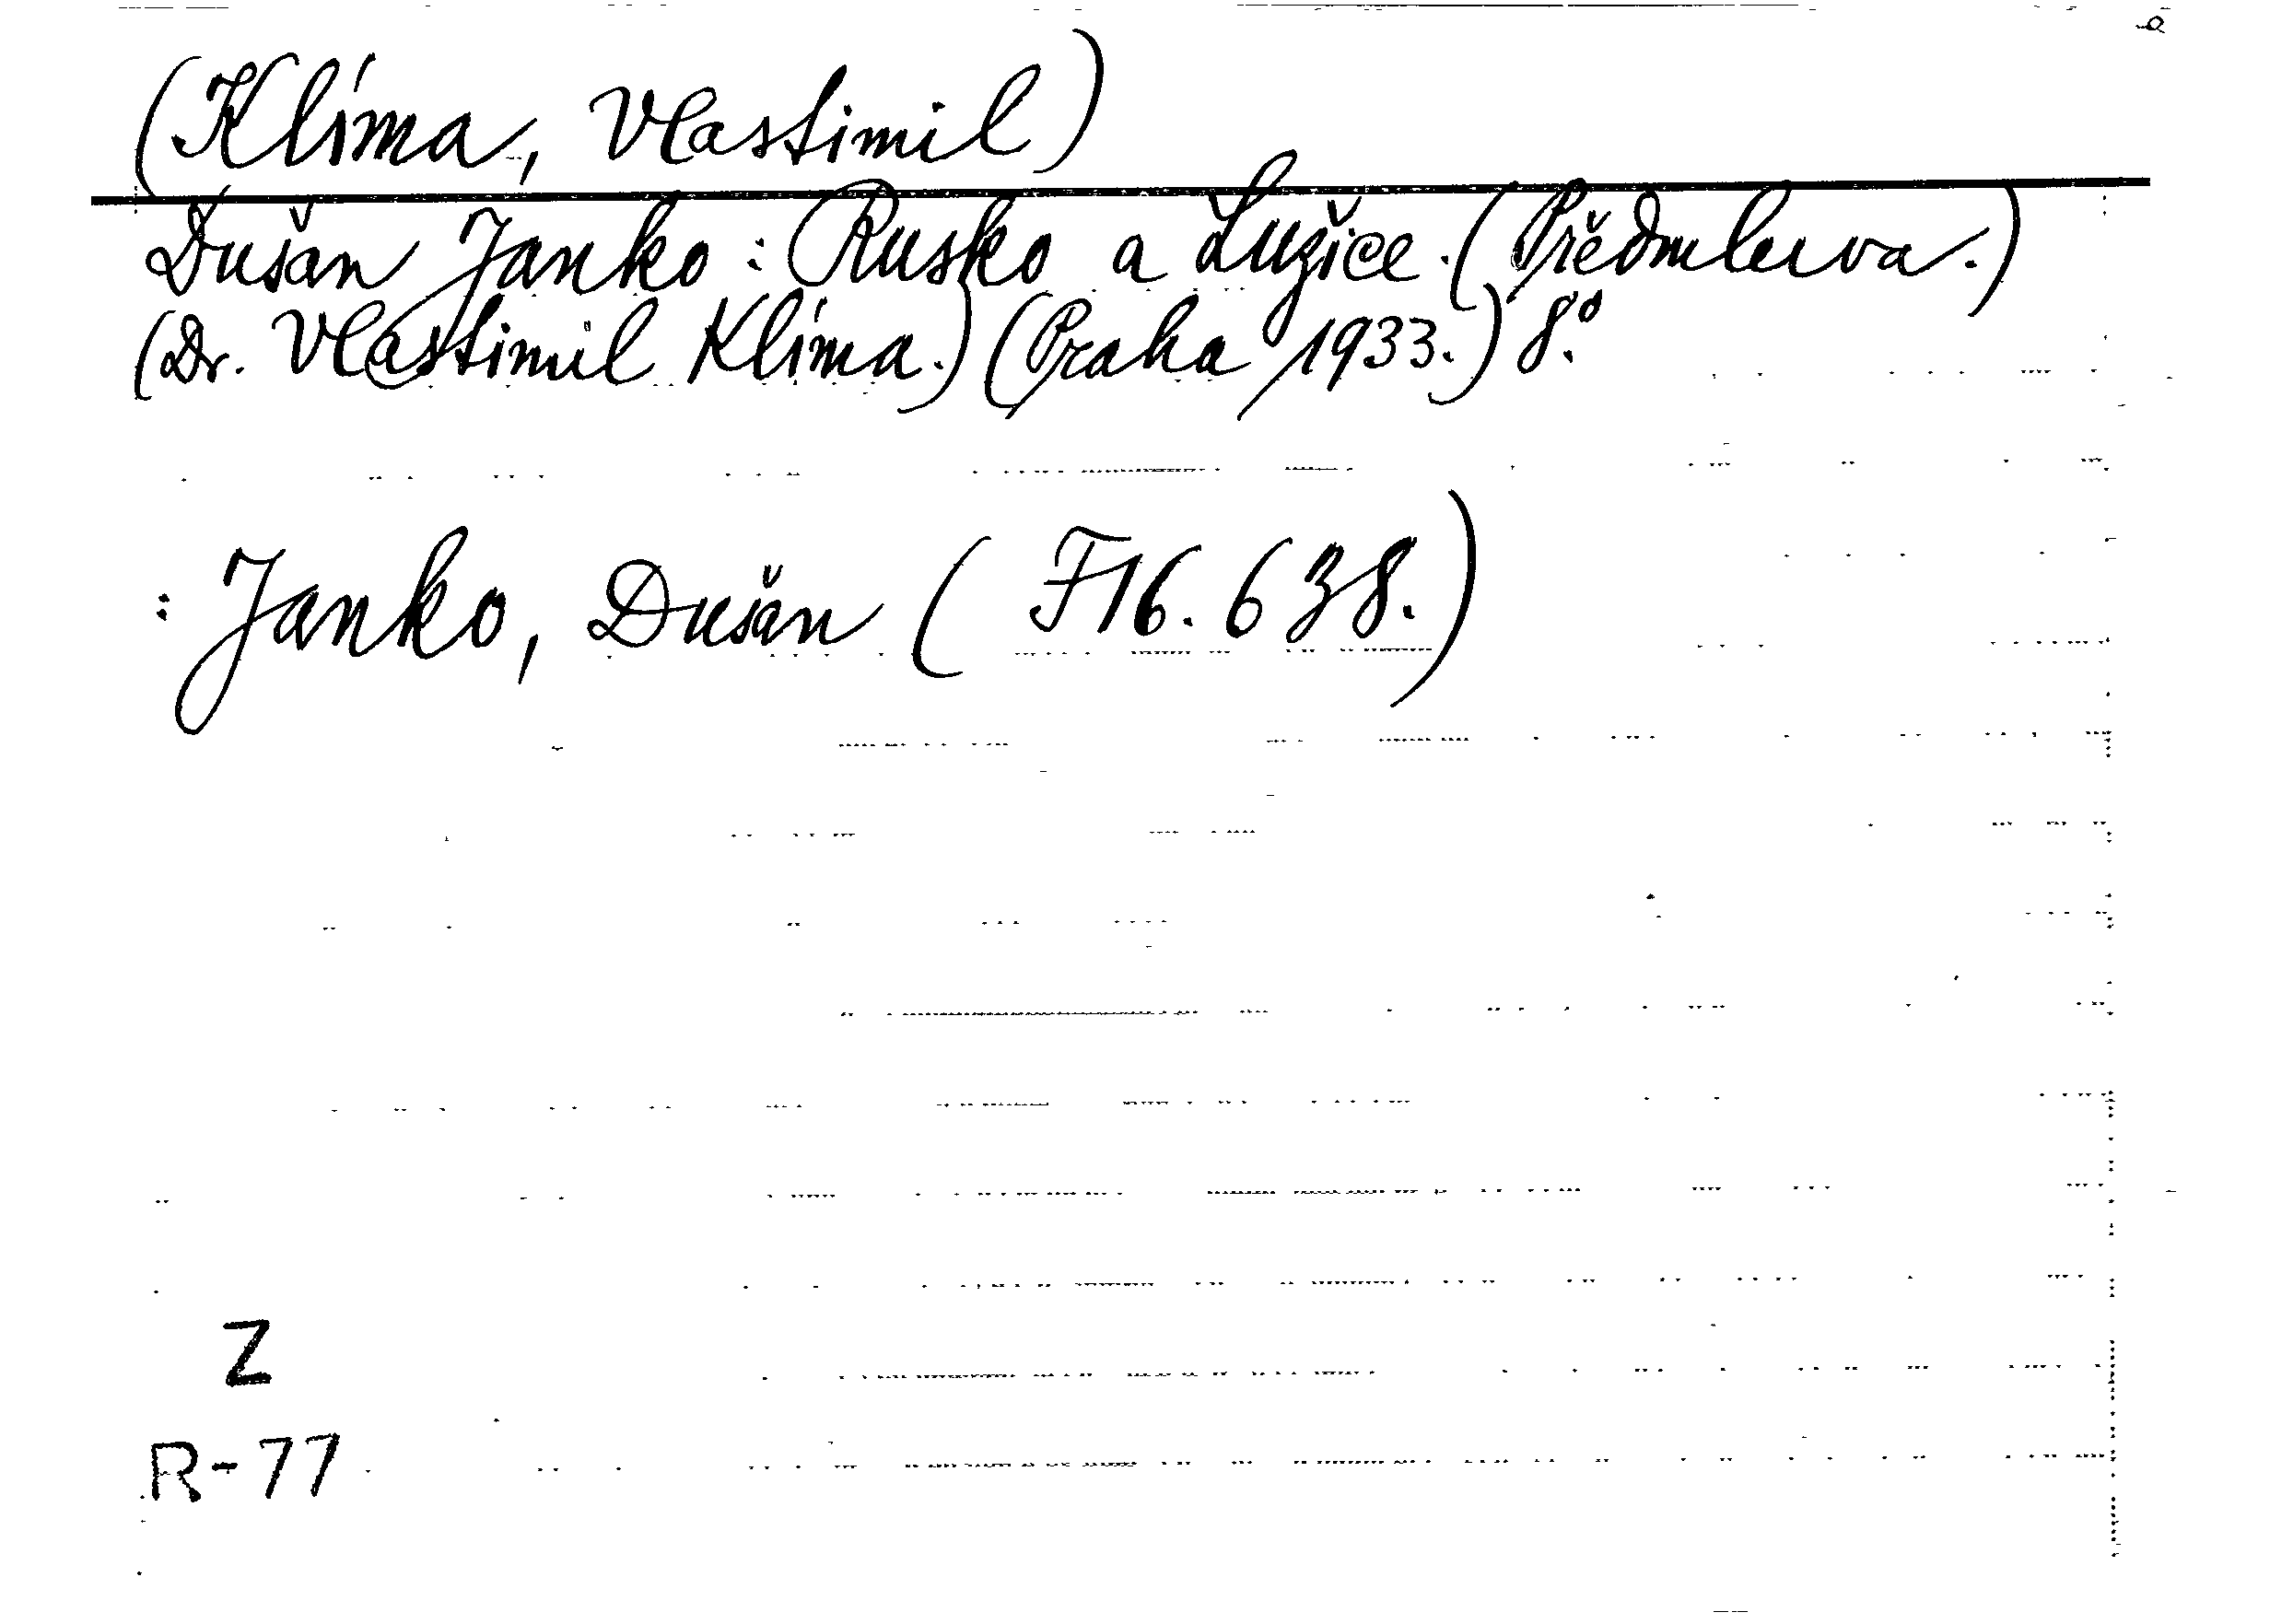 (Klíma, Vlastimil)
Dušan Janko: Rusko a Lužice. (Předmluva.)
(Dr. Vlastimil Klíma.) (Praha 1933.) 8°.
: Janko, Dušan ( F16.638.)
Z
R-77